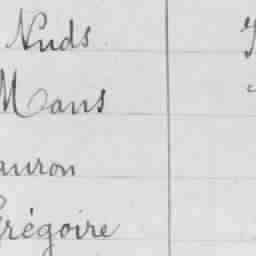 Nuds
Mans
auron
Grégoire